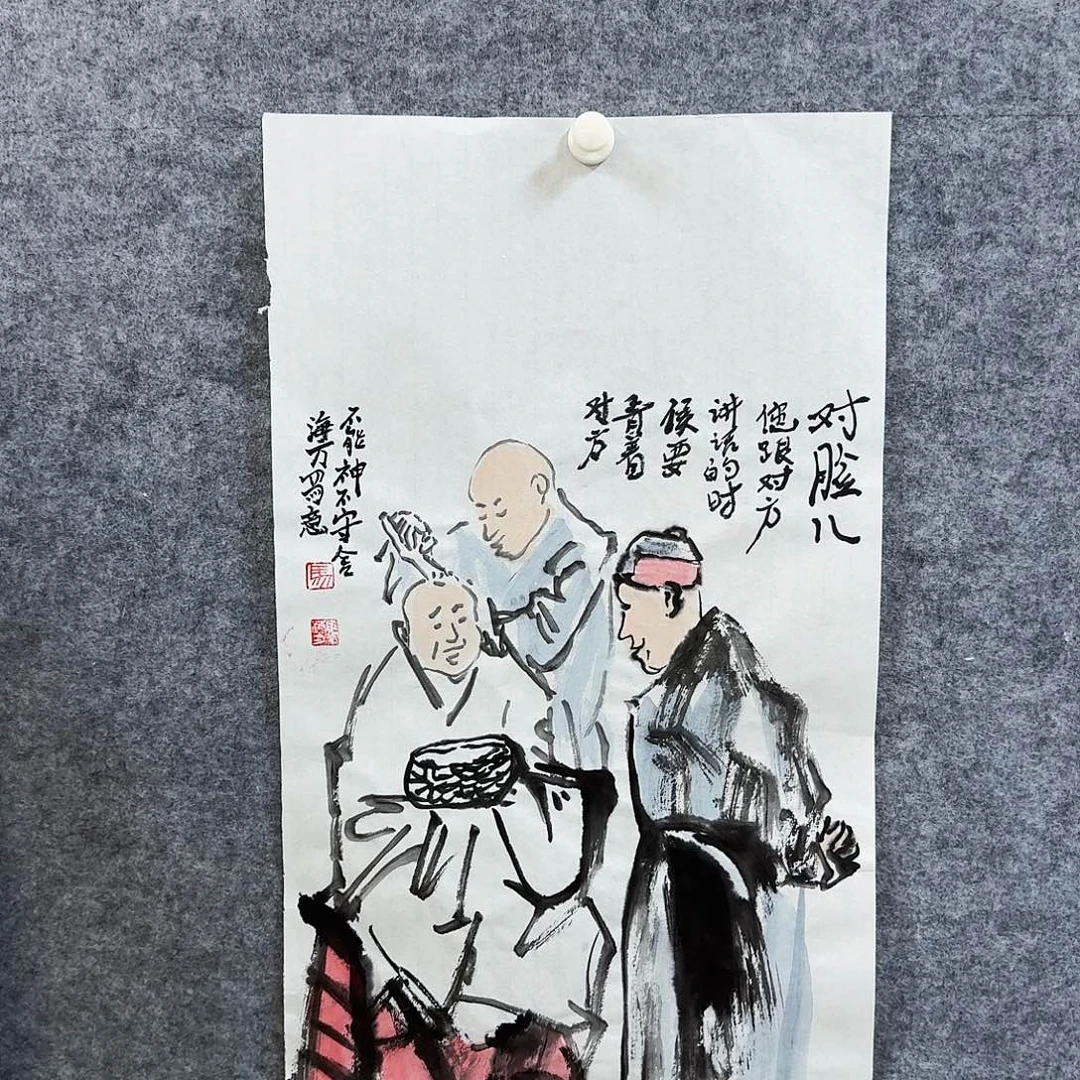 对脸儿
您跟对方
讲话的时
候要
看着
对方
不能神不守舍
海万写意